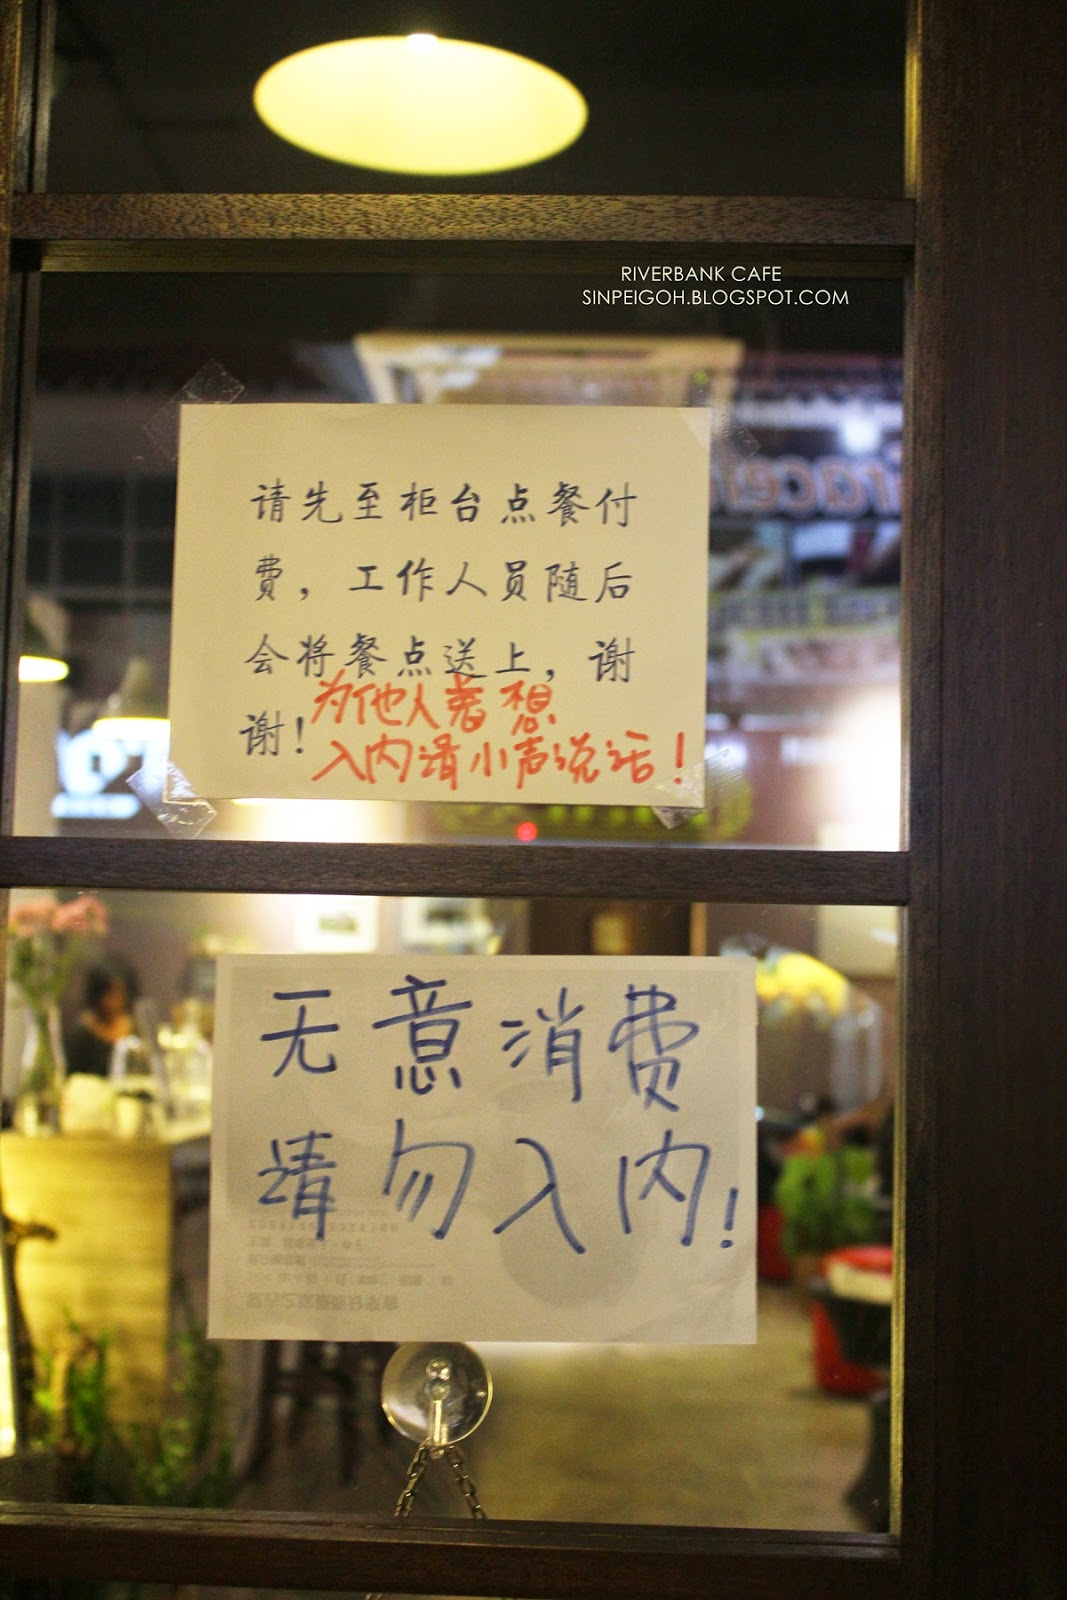 RIVERBANK CAFE
SINPEIGOH.BLOGSPOT.COM
请先至柜台点餐付
费，工作人员随后
会将餐点送上，谢
谢！
为他人着想
入内请小声说话！
无意消费
请勿入内！